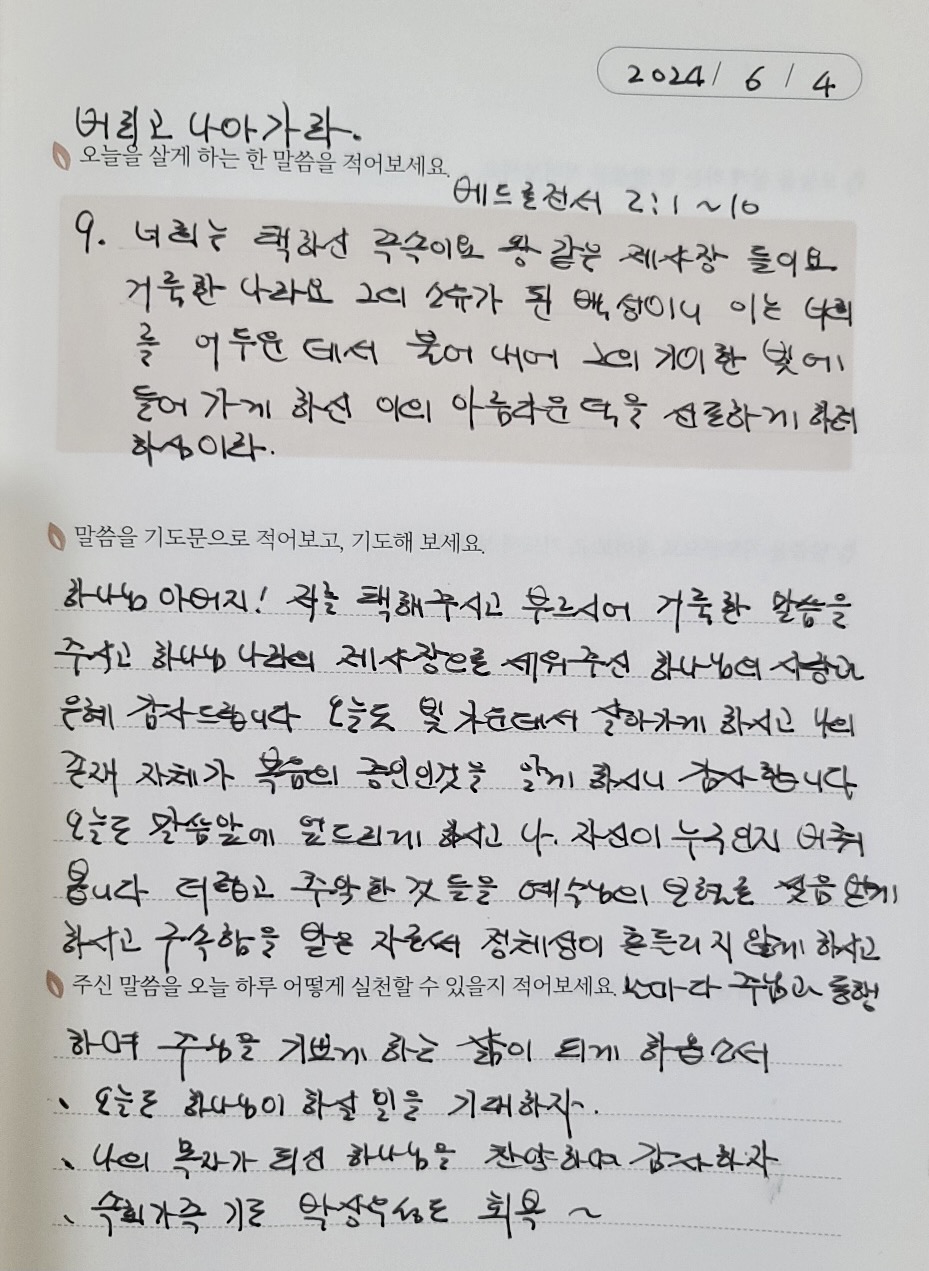 2024 / 6 / 4
버리고 나아가라.
오늘을 살게 하는 한 말씀을 적어보세요.
베드로전서 2:1~10
9. 너희는 택하신 족속이요 왕 같은 제사장 들이요
거룩한 나라요 그의 소유가 된 백성이니 이는 너희
를 어두운 데서 불어 내어 그의 기이한 빛에
들어가게 하신 이의 아름다운 덕을 선포하게 하려
하심이라.
말씀을 기도문으로 적어보고, 기도해 보세요.
하나님 아버지! 저를 택해주시고 부르시어 거룩한 말씀을
주시고 하나님 나라의 제사장으로 세워주신 하나님의 사랑과
은혜 감사드립니다 오늘도 빛 가운데서 살아가게 하시고 나의
존재 자체가 복음의 증인인것을 알게 하시니 감사합니다
오늘도 말씀앞에 엎드리게 하시고 나. 자신이 누구인지 비춰
봅니다 더럽고 추악한 것들을 예수님의 보혈로 씻음 받게
하시고 구속함을 받은 자로서 정체성이 흔들리지 않게 하시고
주신 말씀을 오늘 하루 어떻게 실천할 수 있을지 적어보세요.
날마다 주님과 동행
하여 주님을 기쁘게 하는 삶이 되게 하옵소서
、 오늘도 하나님이 하실 일을 기대하자.
、 나의 목자가 되신 하나님을 찬양하며 감사하자
、 가족 기도